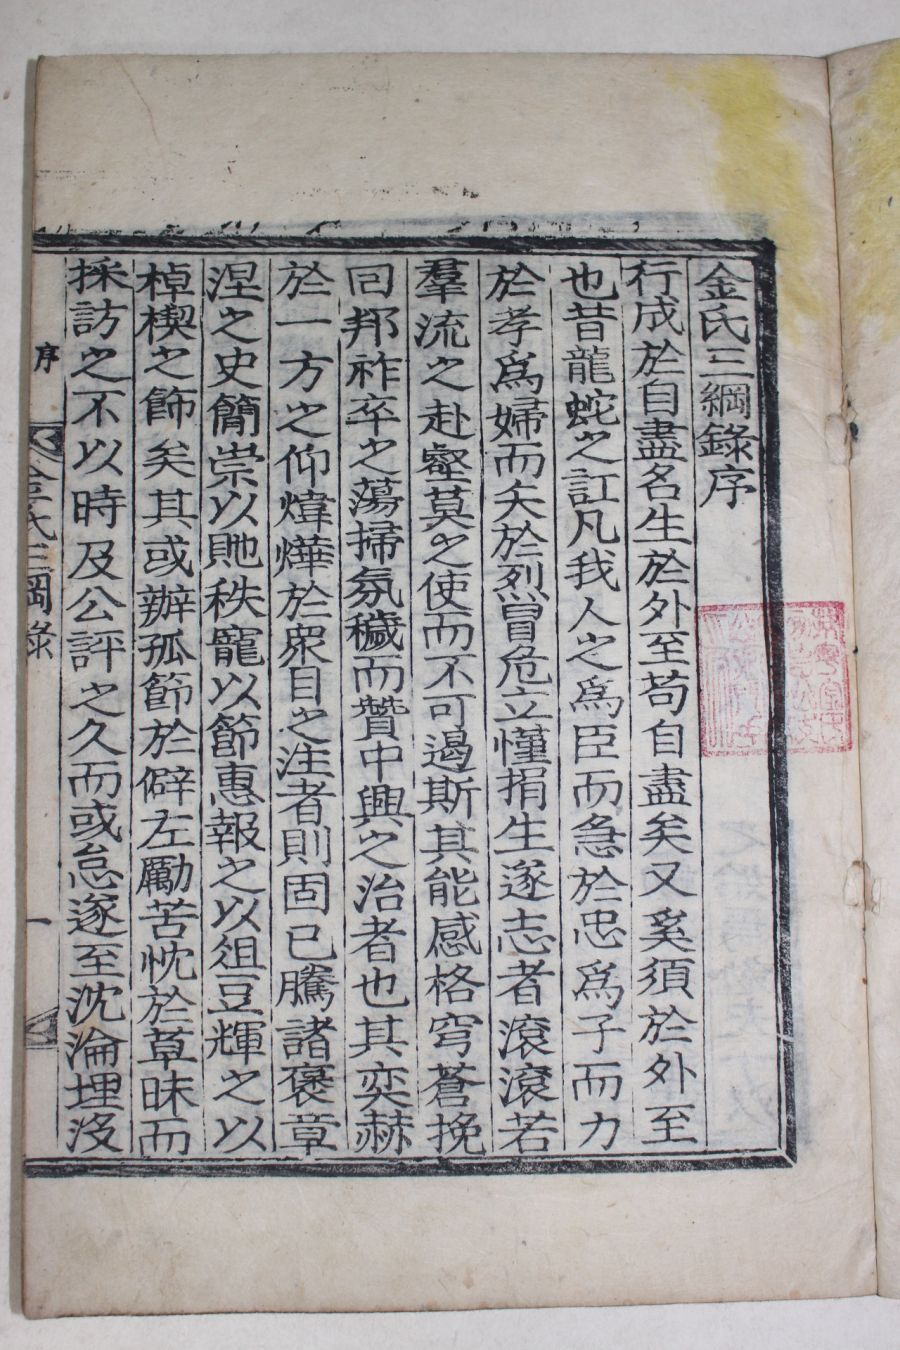 金氏三綱錄序
行成於自盡名生於外至苟自盡矣又奚須於外至
也昔龍蛇之訌凡我人之爲臣而急於忠爲子而力
於孝爲婦而矢於烈冒危立慬捐生遂志者滾滾若
羣流之赴壑莫之使而不可遏斯其能感格穹蒼挽
回邦祚卒之蕩掃氛穢而贊中興之治者也其奕赫
於一方之仰煒燁於衆目之注者則固已騰諸褒章
涅之史簡崇以貤秩寵以節惠報之以俎豆輝之以
棹楔之飾矣其或辦孤節於僻左勵苦忱於草昧而
採訪之不以時及公評之久而或怠遂至沈淪埋沒
序
金氏三綱錄
一